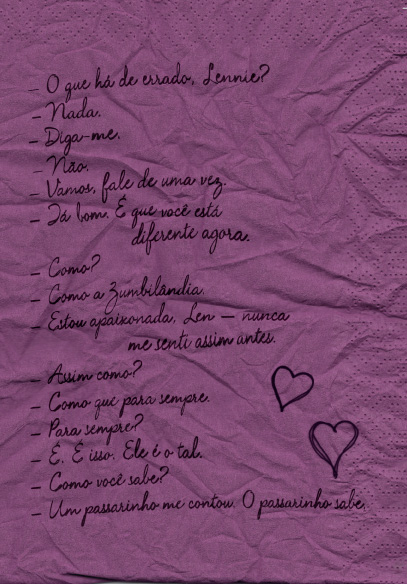 – O que há de errado, Lennie?
– Nada.
– Diga-me.
– Não.
– Vamos, fale de uma vez.
– Tá bom. É que você está
diferente agora.
– Como?
– Como a Zumbilândia.
– Estou apaixonada, Len — nunca
me senti assim antes.
– Assim como?
– Como que para sempre.
– Para sempre?
– É. É isso. Ele é o tal.
– Como você sabe?
– Um passarinho me contou. O passarinho sabe.